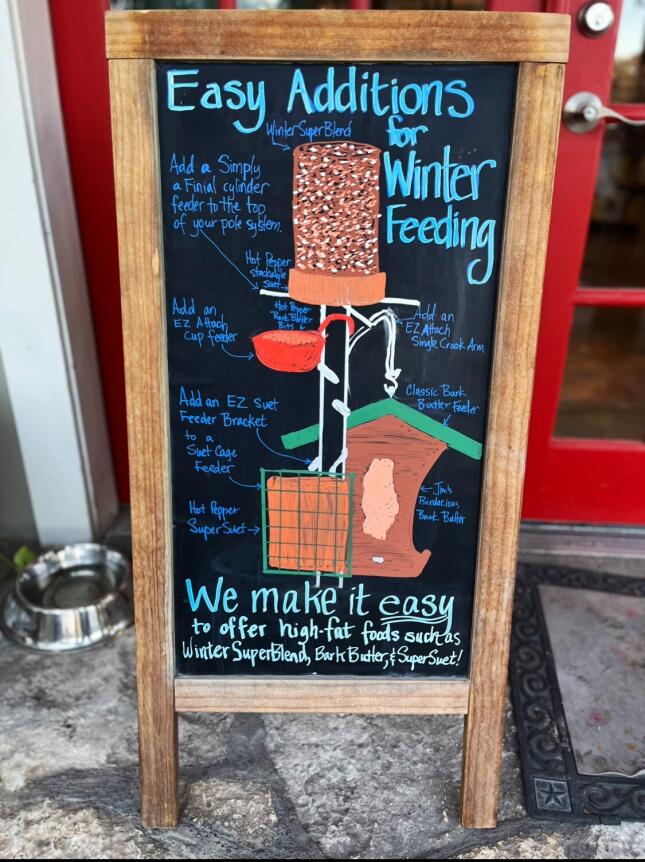 Easy Additions
for
Winter
Feeding
Winter SuperBlend
Add a Simply
a Finial cylinder
feeder to the top
of your pole system.
Hot Pepper
stackable
suet
Hot Pepper
Bark Butter
Bits
Add an
EZ Attach
Cup feeder
Add an
EZ Attach
Single Crook Arm
Classic Bark
Butter Feeder
Add an EZ Suet
Feeder Bracket
to a
Suet Cage
Feeder
Jim's
Birdacious
Bark Butter
Hot Pepper
SuperSuet
We make it easy
to offer high-fat foods such as
Winter SuperBlend, Bark Butter, & SuperSuet!